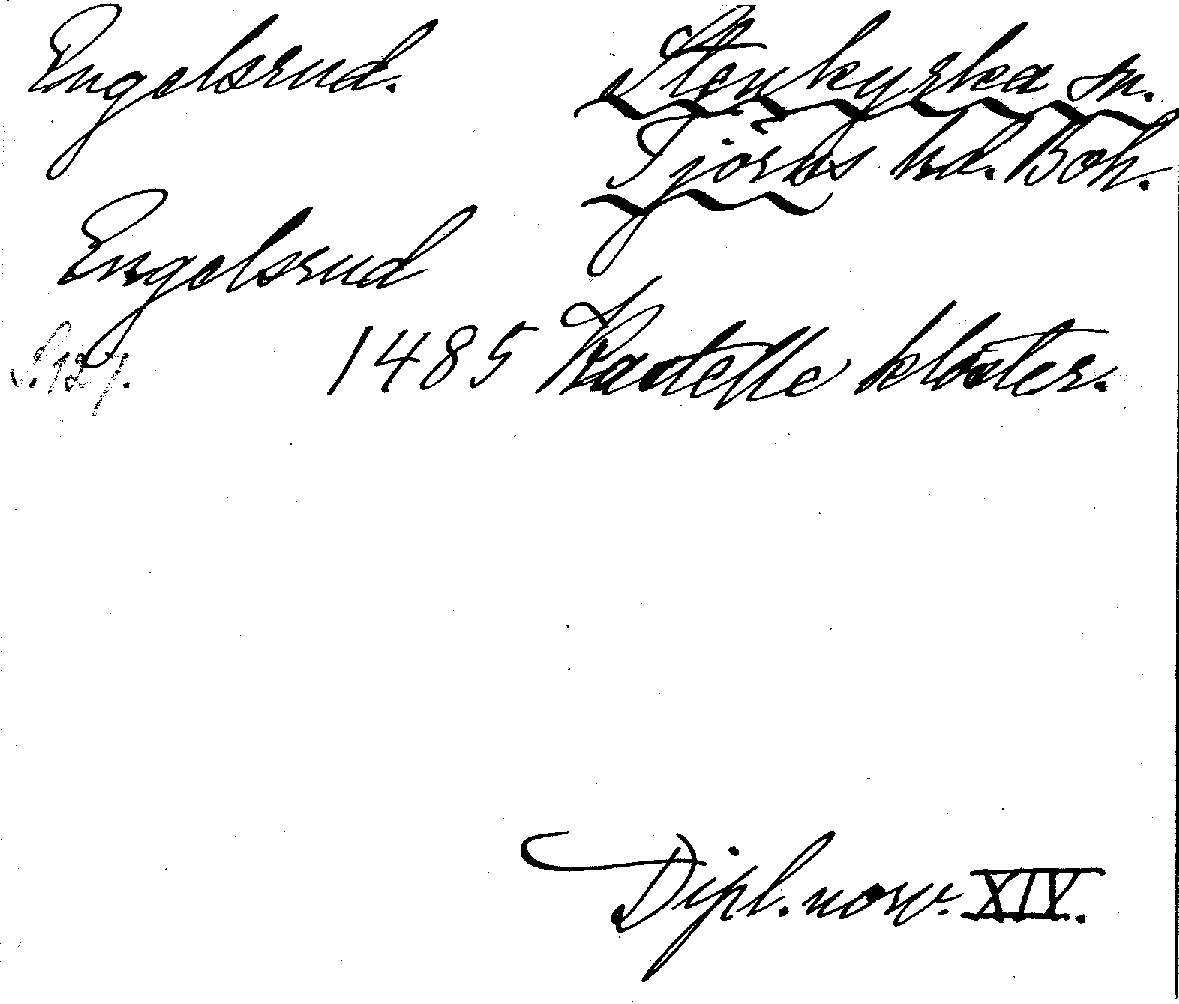 Engelsrud. Stenkyrka sn.
Tjörns hd. Boh.
Engelsrud
S. 127. 1485 Kastelle kloster.
Dipl. norv. XIV.